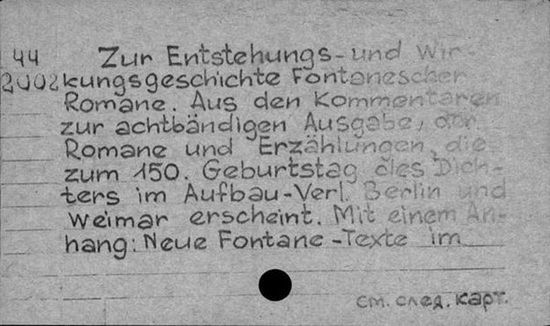 44 Zur Entstehungs- und Wir-
2002 kungsgeschichte Fontanescher
Romane. Aus den Kommentaren
zur achtbändigen Ausgabe, der
Romane und Erzählungen, die
zum 150. Geburtstag des Dich-
ters im Aufbau-Verl. Berlin und
Weimar erscheint. Mit einem An-
hang: Neue Fontane-Texte im
см. след. карт.